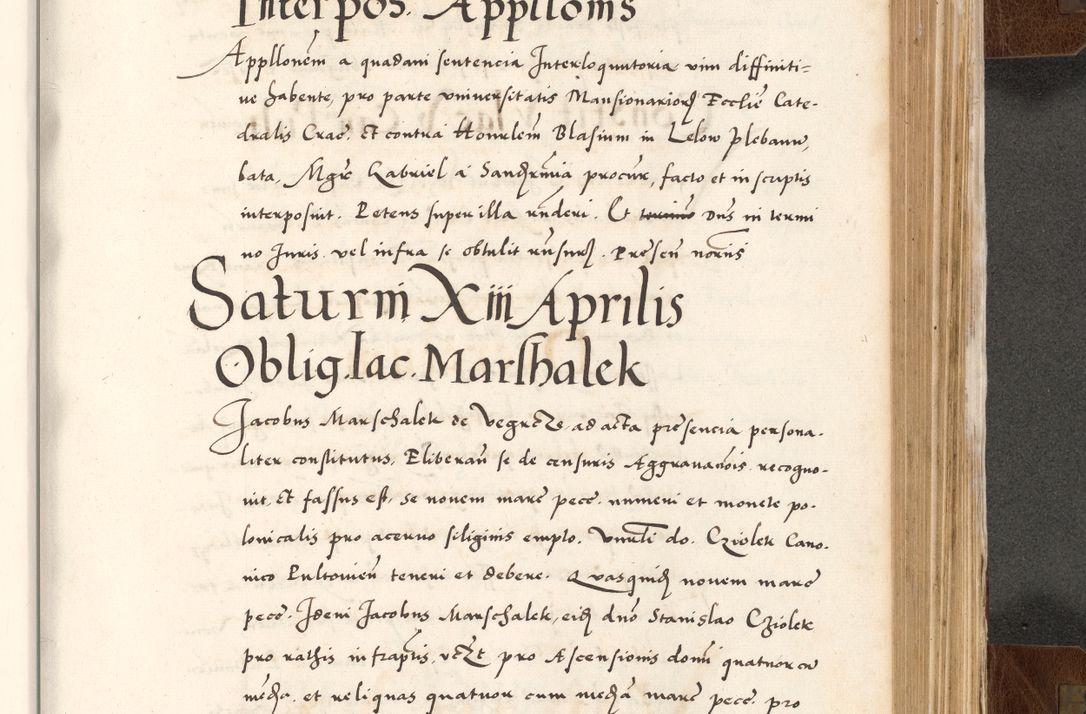 Interpos. Appllonis
Appllonem a quadam sentencia Interloquutoria vim diffiniti=
ue habente, pro parte vniuersitatis Mansionarior Ecclie Cate-
dralis Crac. Et contra Honrlem Blasium in Lelow plebanu,
bata, Mgr Gabriel a procur, facto et in scriptis
interposuit. Petens super illa rnderi. Et termino Dns in termi
no Iuris. vel infra se obtulit rnsur. Presen noriis
Saturni Xiii Aprilis
Oblig. Iac. Marshalek
Jacobus Marschalek de ad acta presencia persona.
liter constitutus, Eliberan se de censuris Aggrauacois. recogno-
uit, Et fassus est, se nouem marc pecc. numeri et monete po-
lonicalis pro aceruo siliginis empto. Vnrli do. Cziolek Cano.
nico Pultouien teneri et debere. Quasquid nouem marc
pecc. Idem Jacobus Marschalek, eid dno Stanislao Cziolek
pro rathis infraptis, vczt pro Ascensionis domi quatuor cu
media, et reliquas quatuor cum media marc pecc. pro